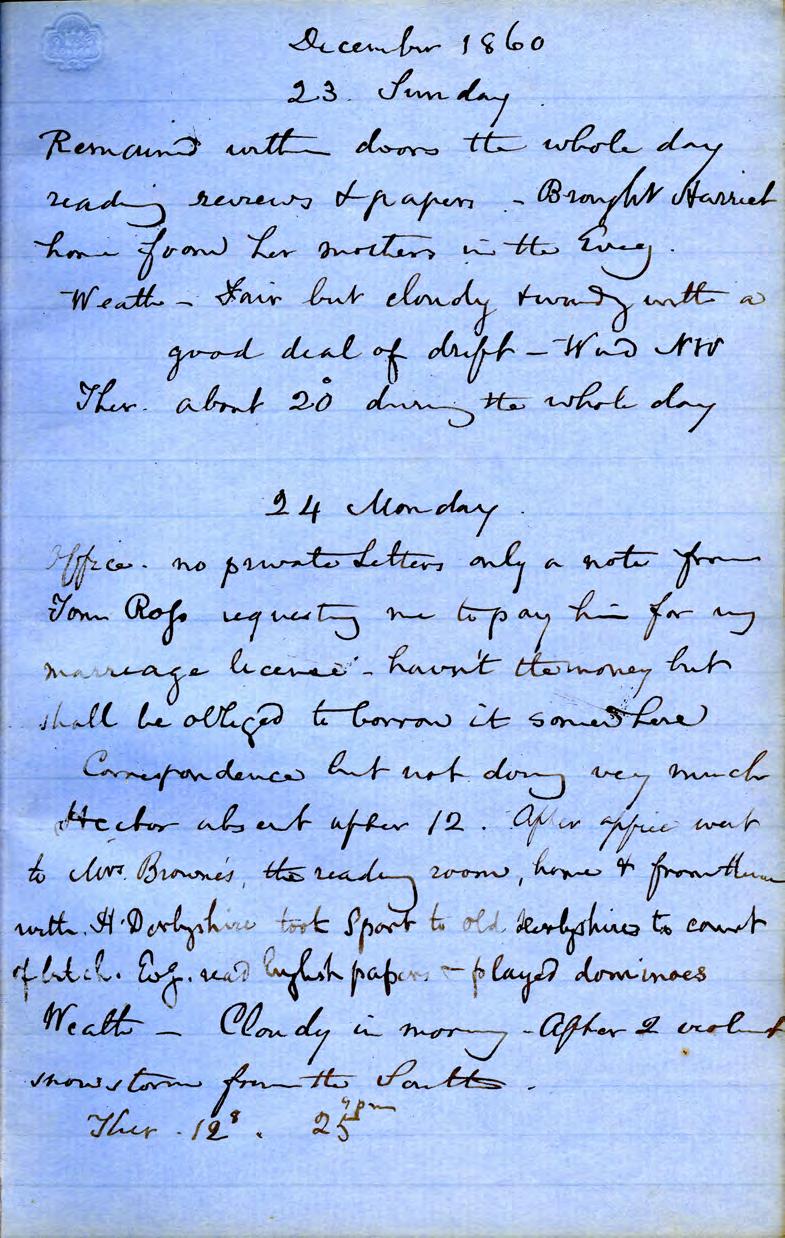 December 1860
23 Sunday
Remained within doors the whole day
reading reviews & papers - Brought Harriet
home from her mothers in the Eveg.
Weath - Fair but cloudy & windy with a
good deal of drift - Wind NW
Ther. about 20° during the whole day
24 Monday.
Office. no private letters only a note from
Tom Ross requesting me to pay him for my
marriage license - havn't the money but
shall be obliged to borrow it somewhere
Correspondence but not doing very much
Hector absent after 12. After office went
to Mrs. Browne's, the reading room, home & from thence
with H. Derbyshire took Sport to old Derbyshires to court
of bitch. Evg. read English papers & played dominoes
Weath - Cloudy in morng - After 2 violent
snowstorm from the South.
Ther. 12⁸. 25 9pm